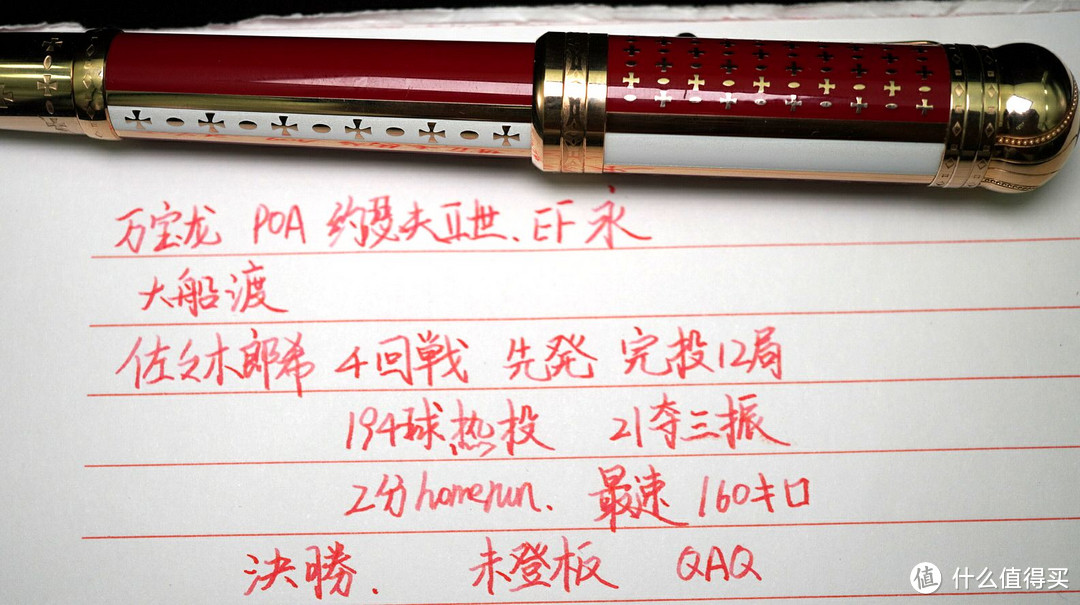 万宝龙 POA 约瑟夫二世、EF 永
大船渡
佐々木郎希 4回戦 先発 完投12局
194球热投 21夺三振
2分homerun. 最速160キロ
決勝. 未登板 QAQ
值 什么值得买